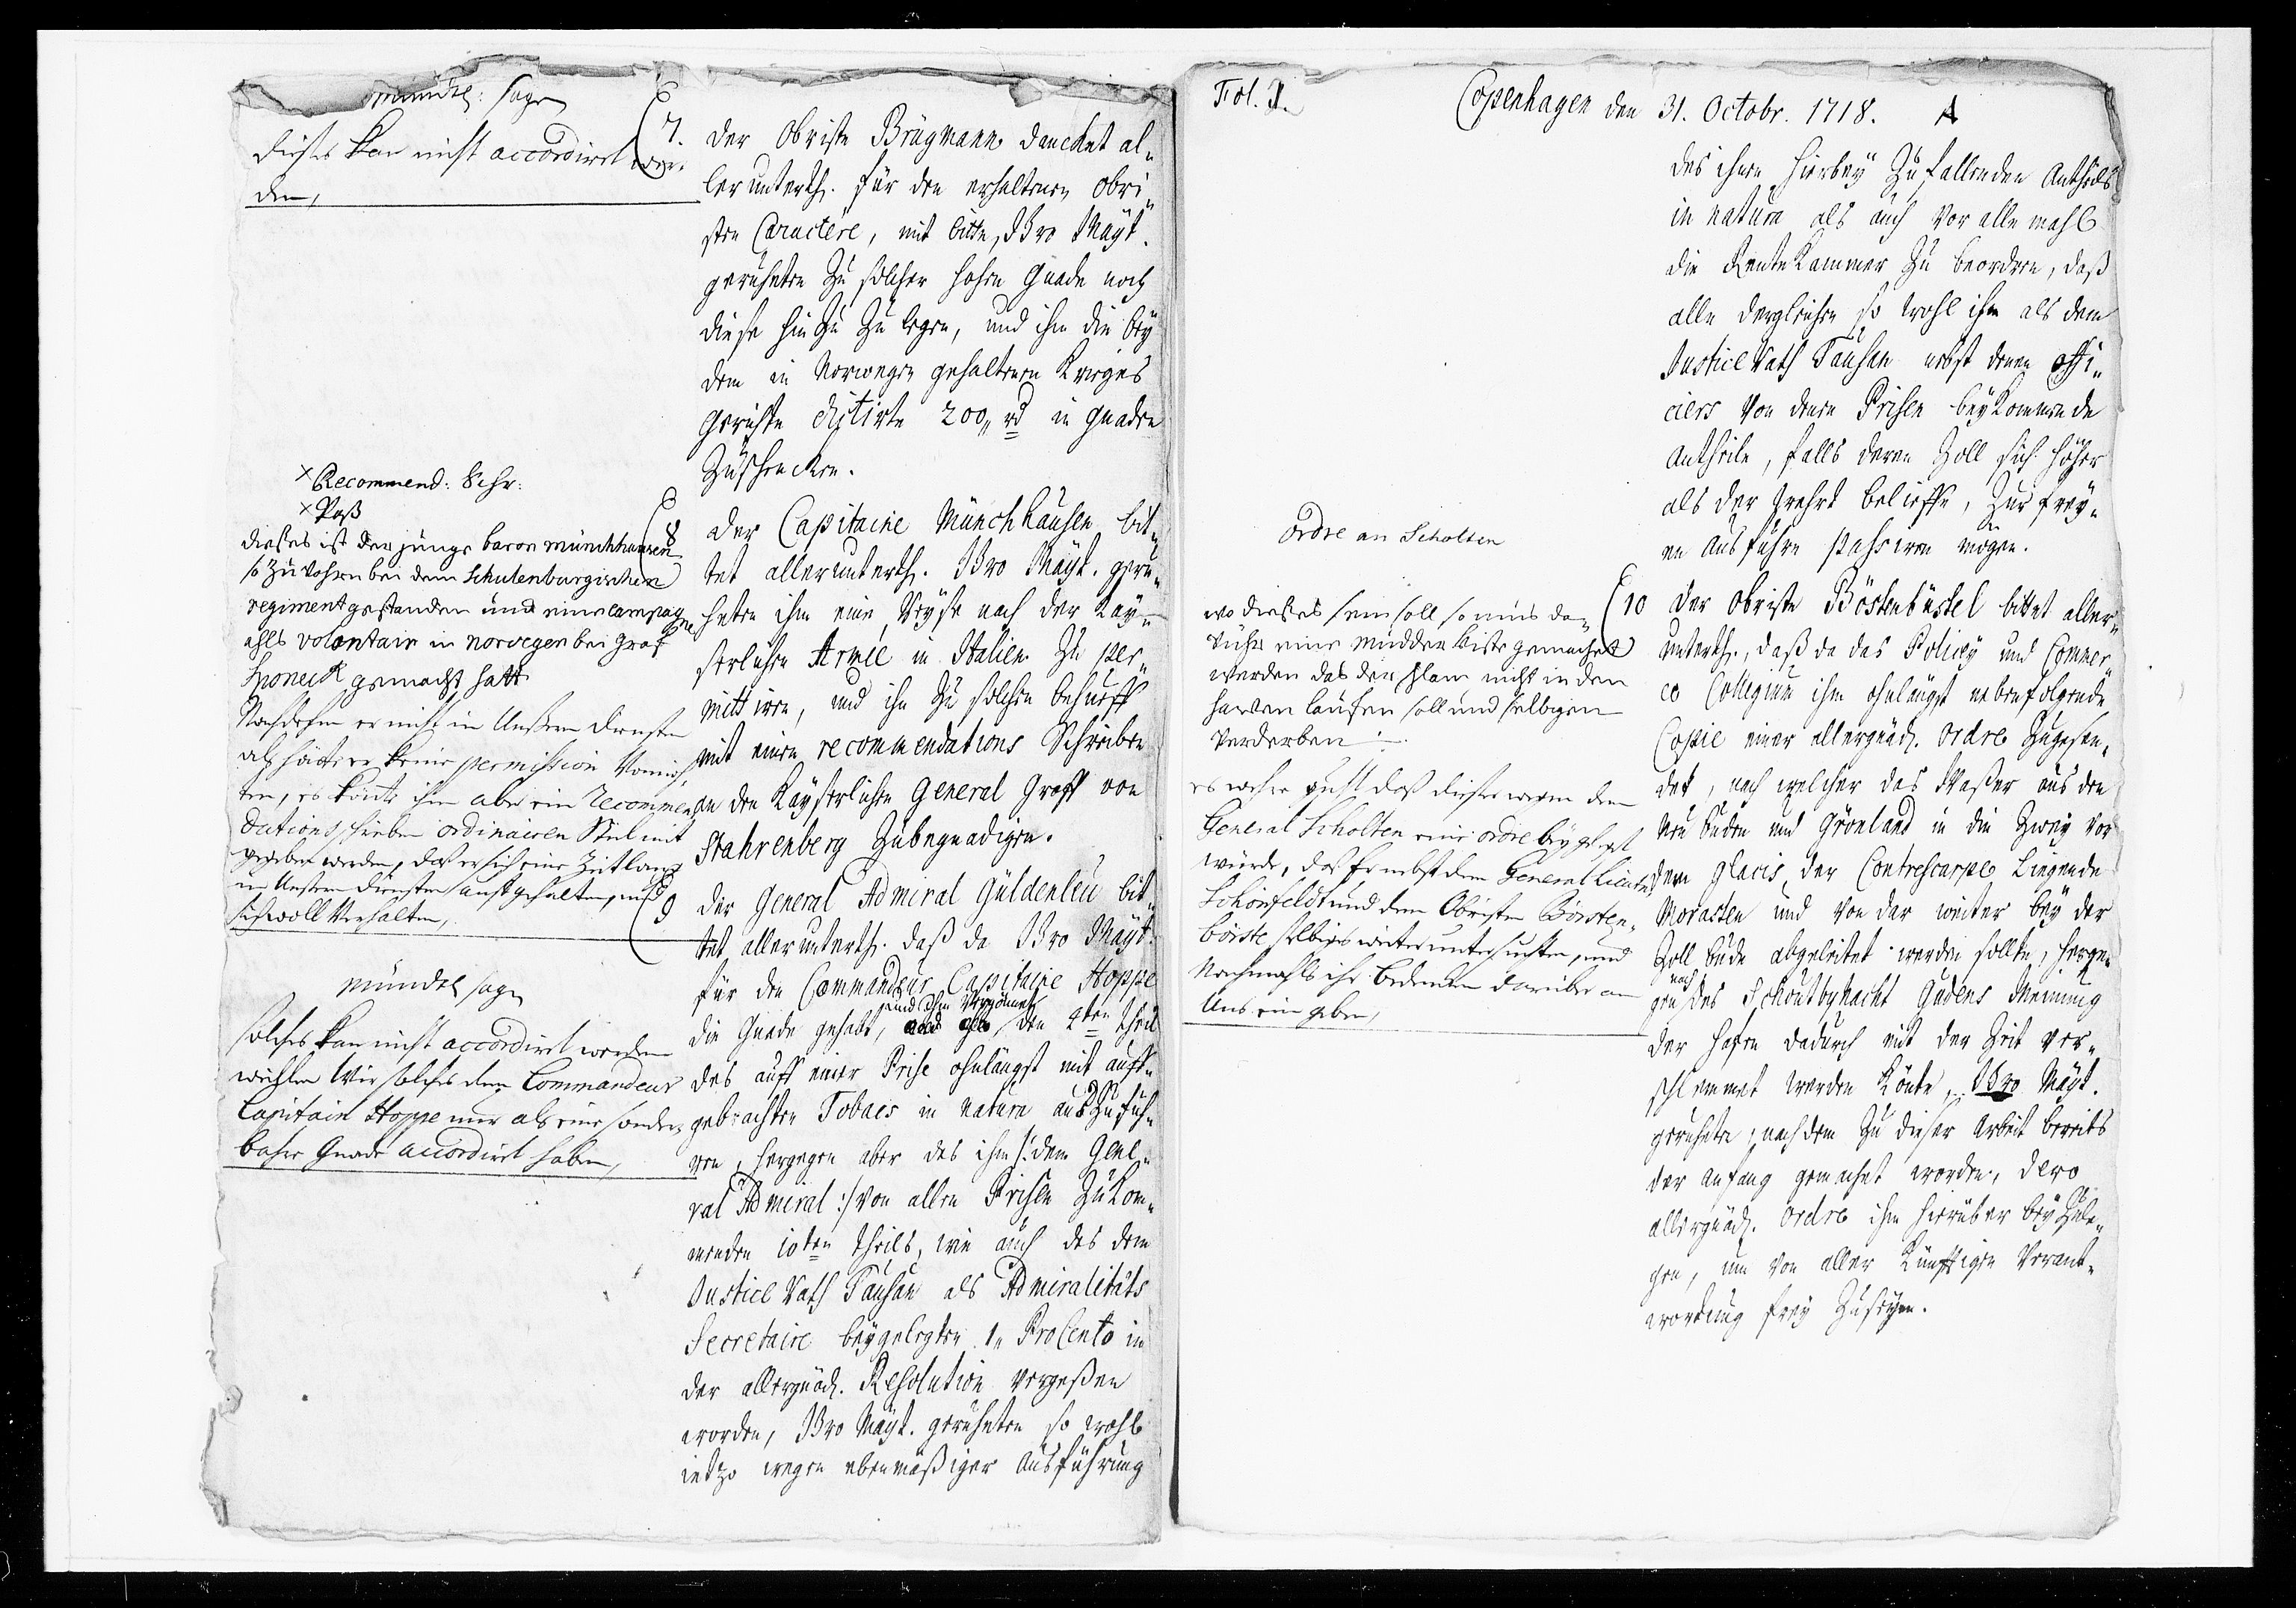 mündl: sagen
dießes kan nicht accordiret wer„
den,
7.
Der Obriste Brügmann dancket al„
lerunterth. für den erhaltenen Obri„
sten Caractére, mit bitte, Ihro Mayt.
geruheten zu solcher hohen Gnade noch
diese hin zu zu legen, und ihm die bey
dem in Norwegen gehaltenen Krieges
Gerichte dictirte 200„ rd in Gnaden
zuschencken.
× Recommend: Schr:
× Paß
8
dießes ist der junge baron münchhausen
so zu vohren bei dem Schulenburgischen
regiment gestanden und eine campagne
alls volontair in norwegen bei graf
Sponeck gemacht hatt.
Nachdehm er nicht in Unßern Diensten
alß hätte er keine permission
ten, es könte ihm aber ein recommen
dations schreiben ordinairen Stiel mit
gegeben werden, daß er sich eine Zeitlang
in Unßern Diensten auffgehalten, und
sich woll verhalten,
Der Capitaine Münchhausen bit„
tet allerunterth. Ihro Mayt. geru„
heten ihm eine Reyse nach der Kay„
serlichen Armée in Italien zu per„
mittiren, und ihn zu solchen behueff
mit einem recommendations Schreiben
an den Kayserlichen General Graff von
Stahrenberg zubegnadigen.
9
Der General Admiral Güldenleu bit„
tet allerunterth. daß da Ihro Mayt.
für den Commandeur Capitaine Hoppe
und ihm vergönnet
die Gnade gehabt, den 4ten theil
des auff einer Prise ohnlängst mit auff„
gebrachten Tobacs in natura auszufüh„
ren, hergegen aber des ihm /: dem Gene„
ral Admiral :/ von allen Prisen zukom„
menden 10ten theils, wie auch des dem
Justice Rath Tausan als Admiralitäts
Secretaire beygelegten 1„ ProCento in
der allergnäd. Resolution vergeßen
worden, Ihro Mayt. geruheten so wohl
ietzo wegen ebenmäßiger Ausführung
mündl sagen
solches kan nicht accordiret werden
weihlen Wir solches dem Commandeur
Capitain Hoppe nur als eine sonder„
bahre Gnade accordiret haben,
Fol. 1.
Copenhagen den 31. Octobr. 1718. A
des ihnen hierbey zufallenden Antheils
in natura als auch vor alle mahl
die RenteKammer zu beordern, daß
alle dergleichen so wohl ihm als dem
Justice Rath Tausan nebst denen Offi„
ciers von denen Prisen beykommende
Antheile, falls deren Zoll sich höher
als der Zehnt belieffe, zur frey„
en Ausfuhre passiren mögen.
ordre an Scholten
10
wo dießes sein soll so mus da„
vühr eine mudder kiste gemachet
werden das der slam nicht in den
haven laufen soll und selbigen
verderben ÷
es wehre guht daß dießerwegen dem
General Scholten eine ordre beygelegt
würde, daß Er nebst dem General Lieutn:
Schönfeldt und dem Obristen Börsten„
börste selbiges weiter untersuchten, und
Nachmahls ihr bedencken darüber an
Uns eingeben,
Der Obriste Böstenbüstel bittet aller„
unterth., daß da das Policey und Commer„
ce Collegium ihm ohnlängst nebenfolgende
Copie einer allergnäd. Ordre zugesen„
det, nach welcher das Waßer aus den
Neu buden und Grönland in die zwey vor
dem glacis der Contrescarpe liegende
Morasten und von dar weiter bey der
Zoll bude abgeleitet werden sollte, herge„
nach
gen des Schoutbynacht Judens Meinung
der Hafen dadurch mit der Zeit ver„
schlemmet werden könte, Ihro Mayt.
geruheten, nachdem zu dieser Arbeit bereits
der Anfang gemachet worden, Dero
allergnäd. Ordre ihm hierüber beyzule„
gen, um von aller künfftigen Verant„
wortung frey zuseyn.